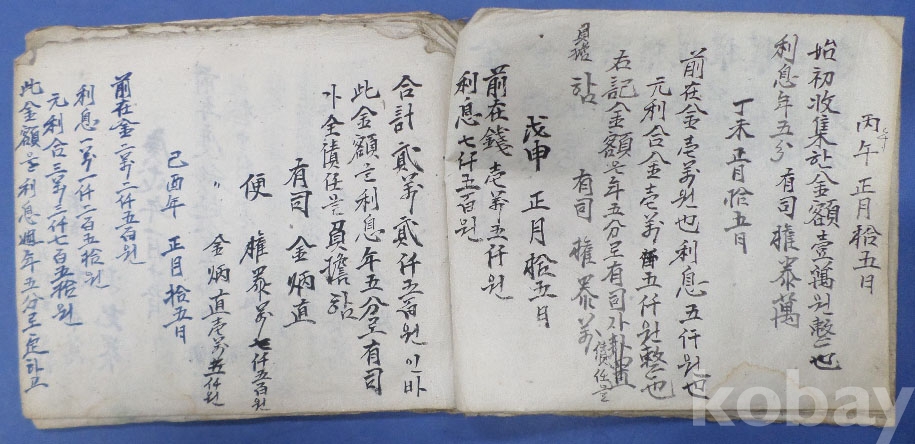 丙午 正月 拾五日
始初收集한金額壹萬원整也
利息年五分 有司 權泰萬
丁未正月拾五日
前在金壱萬원也利息五仟원也
元利合金壱萬五仟원整也
右記金額은年五分로有司가 責任을
負擔함 有司 權泰萬
戊申 正月 拾五日
前在錢壱萬五仟원
利息七仟五百원
合計貳萬貳仟五百원인바
此金額은利息年五分로有司
가全責任을負擔함
有司 金炳直
便 權泰萬 七仟五百원
〃 金炳直壱萬五仟원
己酉年 正月 拾五日
前在金二萬二仟五百원
利息一萬一仟二百五拾원
元利合三萬三仟七百五拾원
此金額은利息週年五分로定하고
kobay